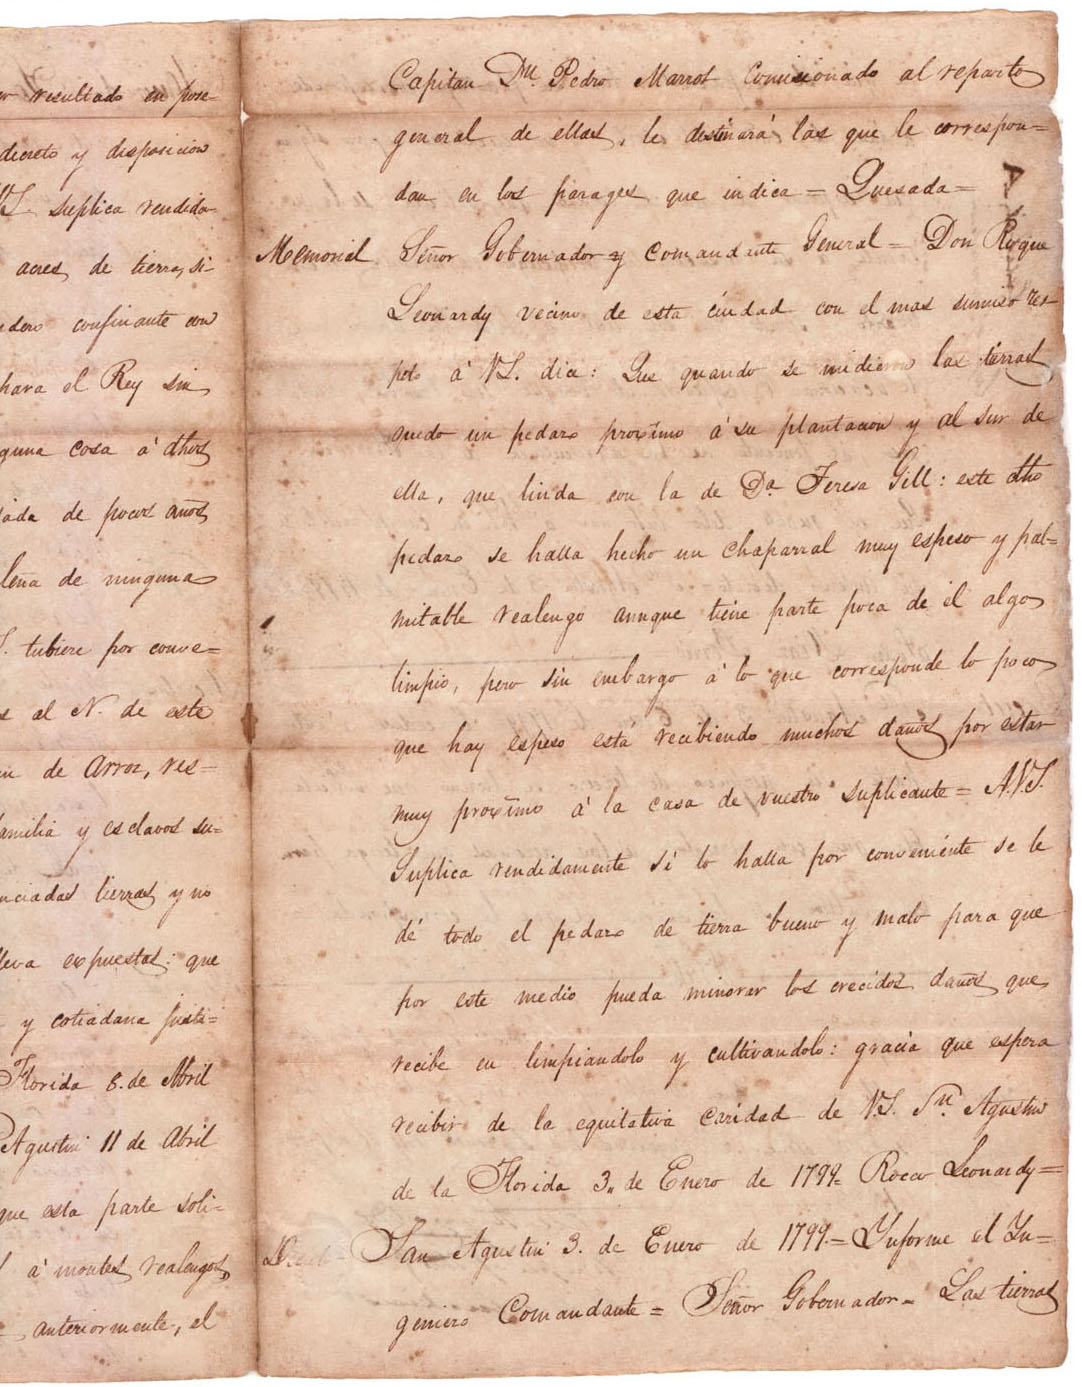 resultado en pose-
decreto y disposicion
VS. suplica rendida-
acres de tierra, si-
confinante con
el Rey sin
cosa á dhos
de pocos años
leña de ninguna
tubiere por conve-
al N. de este
de Arroz, res-
familia y esclavos su-
tierras y no
expuestas: que
y cotidiana justi-
Florida 8. de Abril
Agustin 11 de Abril
que esta parte soli-
á montes realengos,
anteriormente, el
Capitan Dn. Pedro Marrot Comisionado al reparto
general de ellas, le destinará las que le correspon=
dan en los parages que indica = Quesada =
Memorial Señor Gobernador y Comandante General = Don Roque
Leonardy vecino de esta ciudad con el mas sumiso res-
peto á VS. dice: Que quando se midieron las tierras
quedo un pedazo proximo á su plantacion y al sur de
ella, que linda con la de Da. Teresa Gill: este dho
pedazo se halla hecho un chaparral muy espeso y pal=
mitable realengo aunque tiene parte poca de él algo
limpio, pero sin embargo á lo que corresponde lo poco
que hay espeso está recibiendo muchos daños por estar
muy proximo á la casa de vuestro suplicante = A.V.S.
Suplica rendidamente si lo halla por conveniente se le
dé todo el pedazo de tierra bueno y malo para que
por este medio pueda minorar los crecidos daños que
recibe en limpiandolo y cultivandolo: gracia que espera
recibir de la equitativa caridad de VS. Sn. Agustin
de la Florida 3,, de Enero de 1799= Rocco Leonardy=
San Agustin 3. de Enero de 1799.= Ynforme el Yn=
geniero Comandante = Señor Gobernador = Las tierras